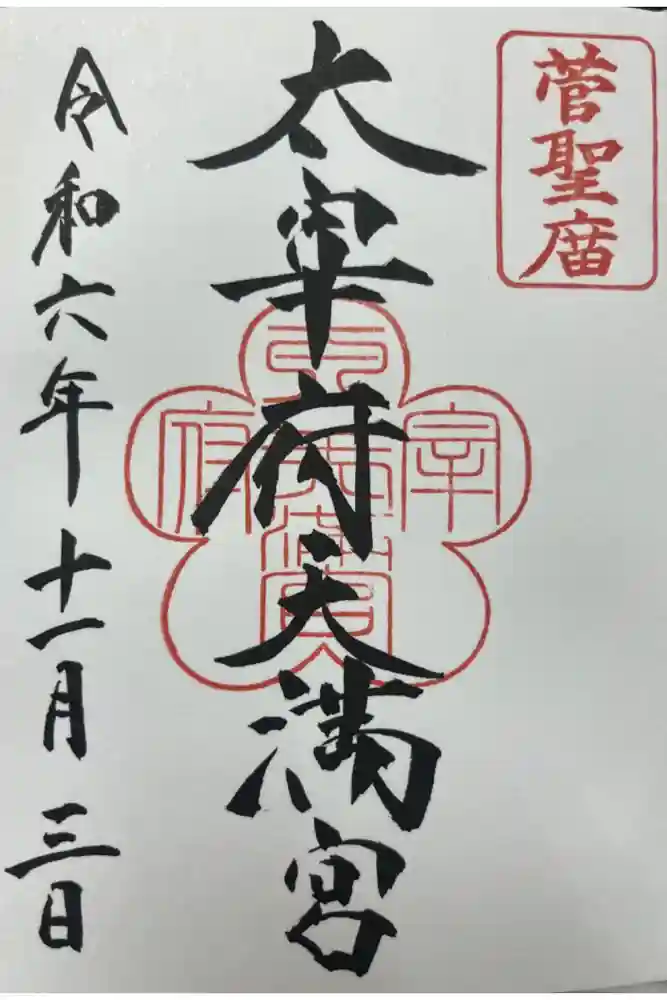 菅聖庿
太宰府天満宮
令和六年十一月三日